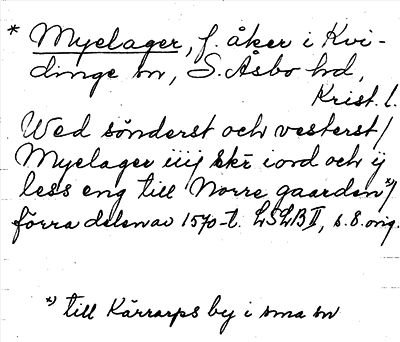 * Myelager, f. åker i Kvi-
dinge sn, S. Åsbo hd,
Krist. l.
Wed sönderst och vesterst/
Myelager iiij skr iord och ij
less eng till Norre gaarden*)/
förra delen av 1570-t. LSLB II, s. 8. orig.
*) till Kärrarps by i sma sn